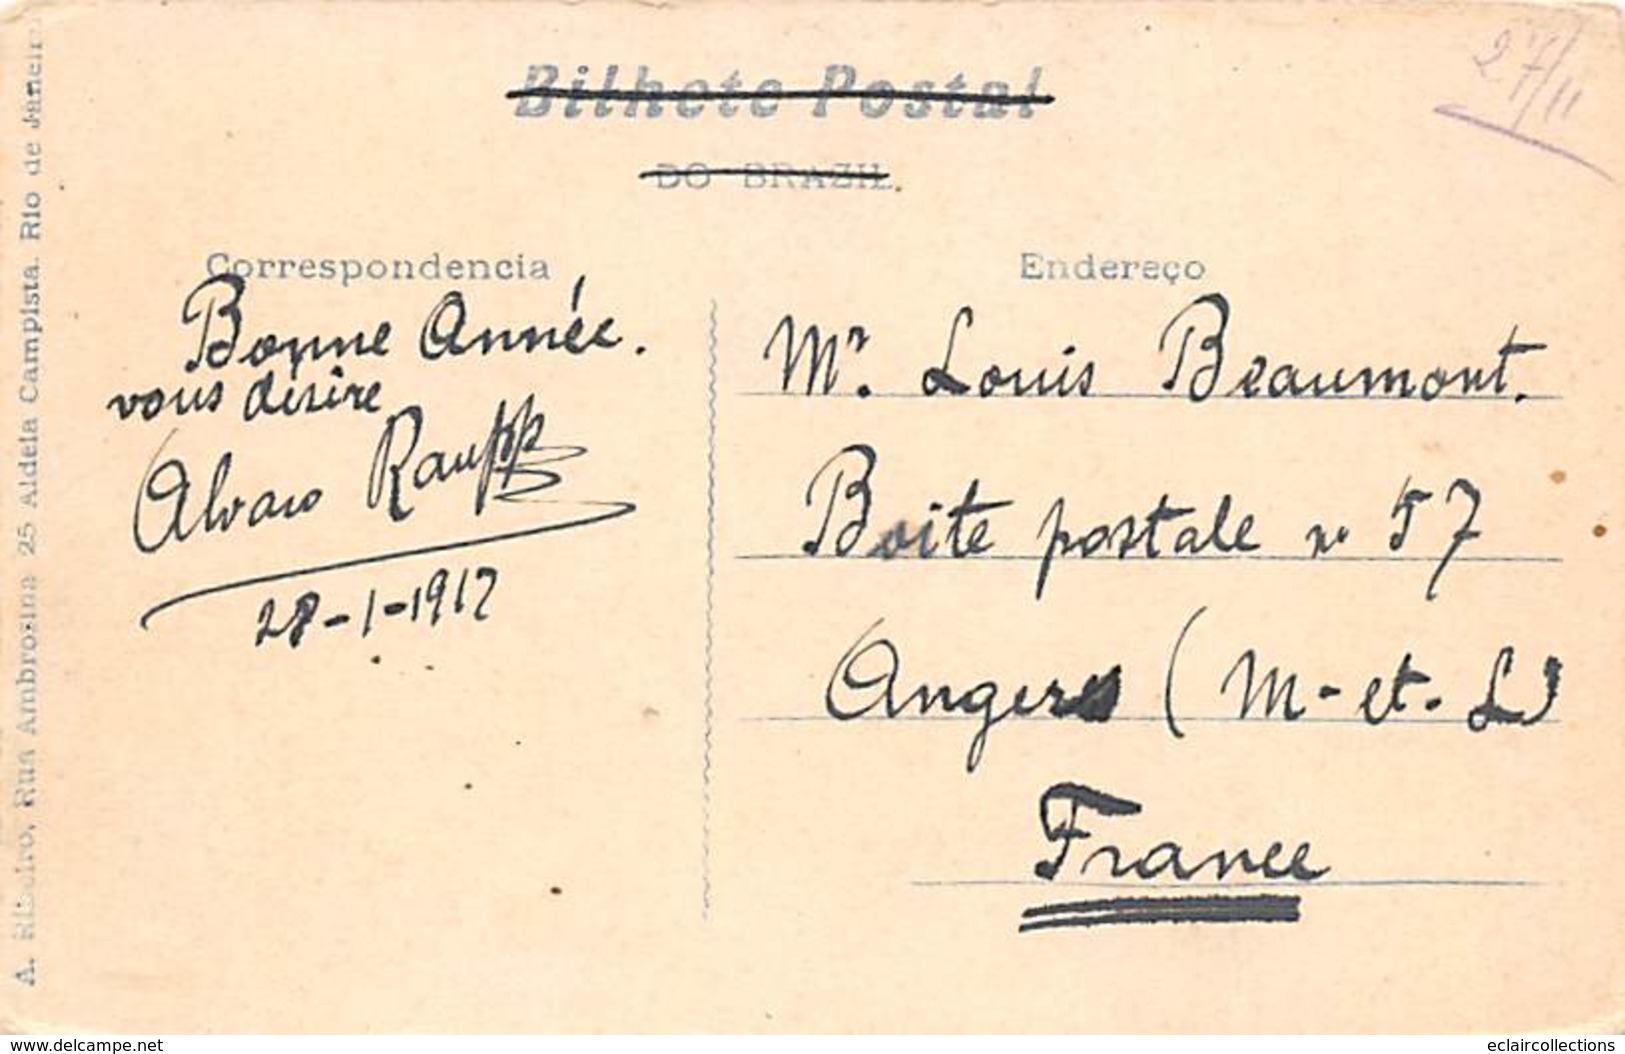 Bilhete Postal
DO BRAZIL
27/11
A. Ribeiro, Rua Ambrosina 25 Aldeia Campista. Rio de Janeiro
Correspondencia
Bonne Année.
vous désire
Alvaro Raupp
28-1-1912
Endereço
Mr. Louis Beaumont.
Boite postale no 57
Angers (M-et-L)
France
www.delcampe.net
eclaircollections